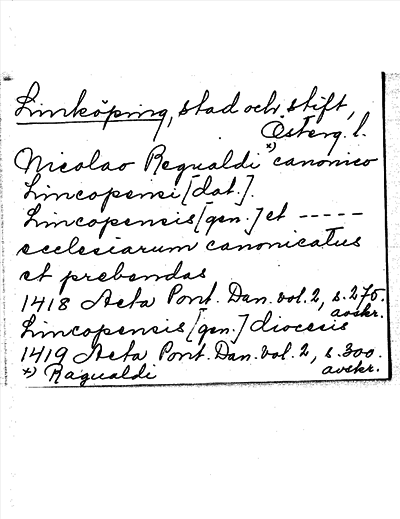 Linköping, stad och stift,
Österg. l.
Nicolao Regualdi *) canonico
Lincopensi [dat.].
Lincopensis [gen.] et -----
ecclesiarum canonicatus
et prebendas
1418 Acta Pont. Dan. vol. 2, s. 275.
avskr.
Lincopensis [gen.] diocesis
1419 Acta Pont. Dan. vol. 2, s. 300.
avskr.
*) Ragualdi